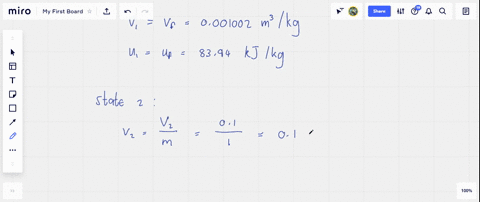 miro
My First Board
Share
V₁ = Vf = 0.001002 m³/kg
u₁ = uf = 83.94 kJ/kg
State 2 :
V₂ = V₂/m = 0.1/1 = 0.1
100%